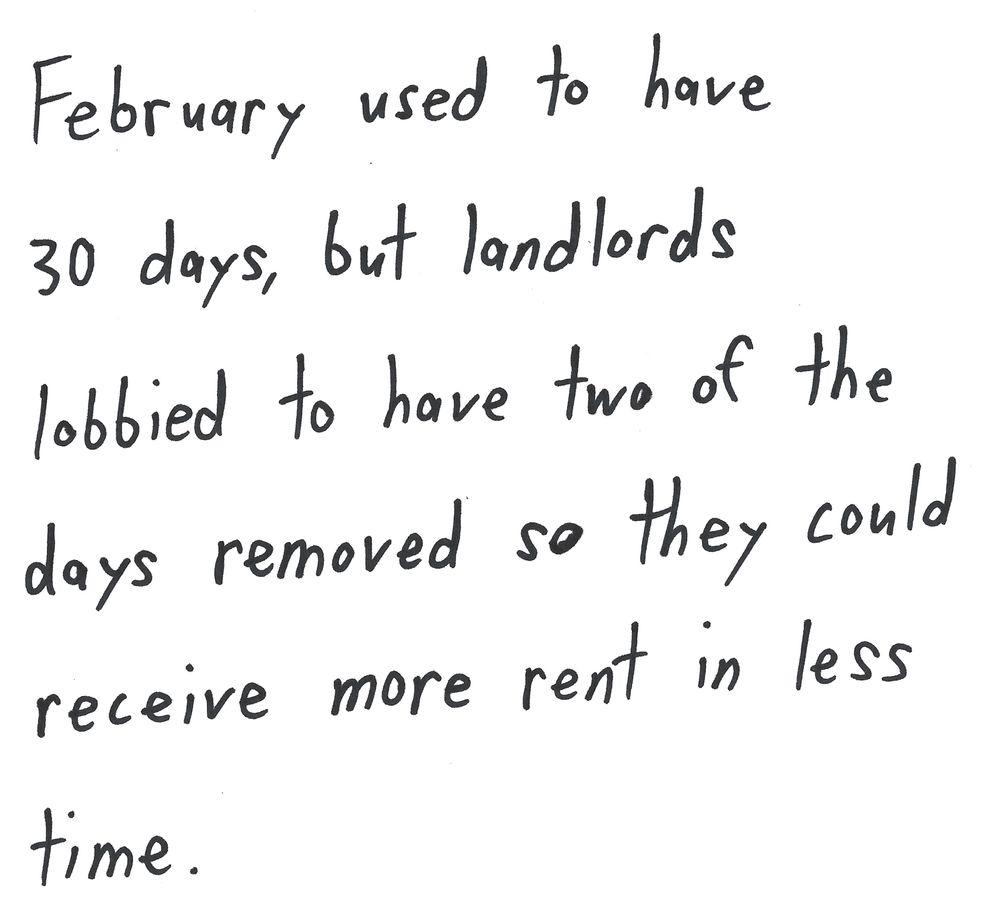 February used to have
30 days, but landlords
lobbied to have two of the
days removed so they could
receive more rent in less
time.